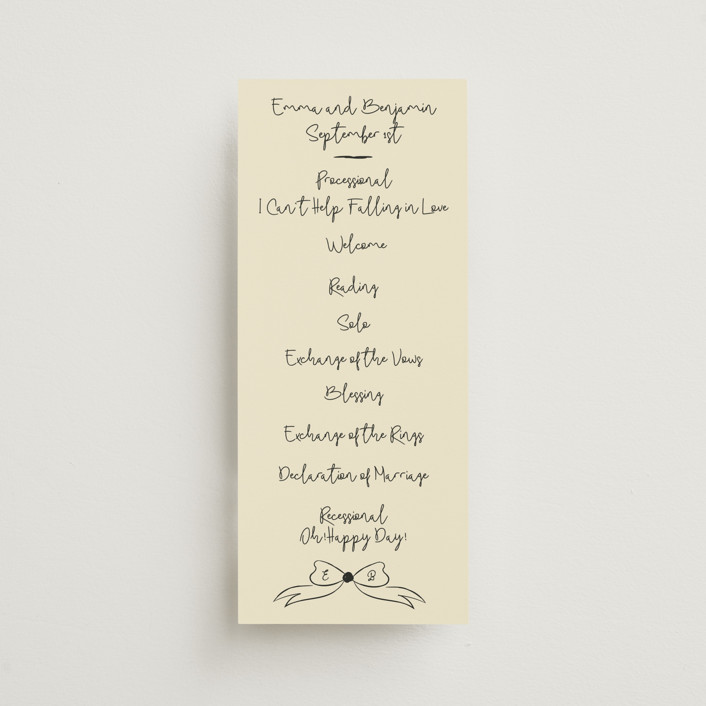 Emma and Benjamin
September 1st
Processional
I Can't Help Falling in Love
Welcome
Reading
Solo
Exchange of the Vows
Blessing
Exchange of the Rings
Declaration of Marriage
Recessional
Oh! Happy Day!
E B